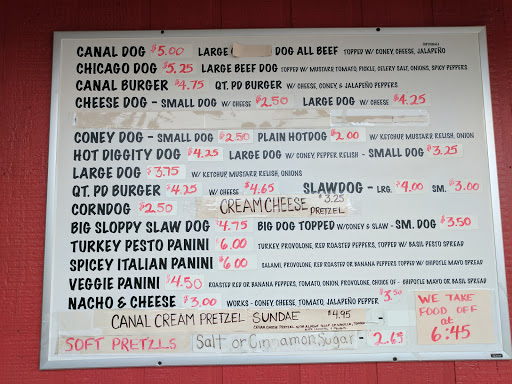 OPTIONAL
CANAL DOG $5.00 LARGE DOG ALL BEEF TOPPED W/ CONEY, CHEESE, JALAPEÑO
CHICAGO DOG $5.25 LARGE BEEF DOG TOPPED W/ MUSTARD, TOMATO, PICKLE, CELERY SALT, ONIONS, SPICY PEPPERS
CANAL BURGER $4.75 QT. PD BURGER W/ CHEESE, CONEY, & JALAPEÑO PEPPERS
CHEESE DOG - SMALL DOG W/ CHEESE $2.50 LARGE DOG W/ CHEESE $4.25
CONEY DOG - SMALL DOG $2.50 PLAIN HOTDOG $2.00 W/ KETCHUP, MUSTARD, RELISH, ONION
HOT DIGGITY DOG $4.25 LARGE DOG W/ CONEY, PEPPER RELISH - SMALL DOG $3.25
LARGE DOG $3.75 W/ KETCHUP, MUSTARD, RELISH, ONIONS
QT. PD BURGER $4.25 W/ CHEESE $4.65 SLAWDOG - LRG. $4.00 SM. $3.00
CORNDOG $2.50 CREAM CHEESE PRETZEL $3.25
BIG SLOPPY SLAW DOG $4.75 BIG DOG TOPPED W/CONEY & SLAW - SM. DOG $3.50
TURKEY PESTO PANINI $6.00 TURKEY, PROVOLONE, RED ROASTED PEPPERS, TOPPED W/ BASIL PESTO SPREAD
SPICY ITALIAN PANINI $6.00 SALAMI, PROVOLONE, RED ROASTED OR BANANA PEPPERS TOPPED W/ CHIPOTLE MAYO SPREAD
VEGGIE PANINI $4.50 ROASTED RED OR BANANA PEPPERS, TOMATO, ONION, PROVOLONE, CHOICE OF - CHIPOTLE MAYO OR BASIL SPREAD
NACHO & CHEESE $3.00 WORKS - CONEY, CHEESE, TOMATO, JALAPEÑO PEPPER $3.50
CANAL CREAM PRETZEL SUNDAE $4.95 -
SOFT PRETZELS Salt or Cinnamon Sugar - 2.65
WE TAKE
FOOD OFF
at
6:45